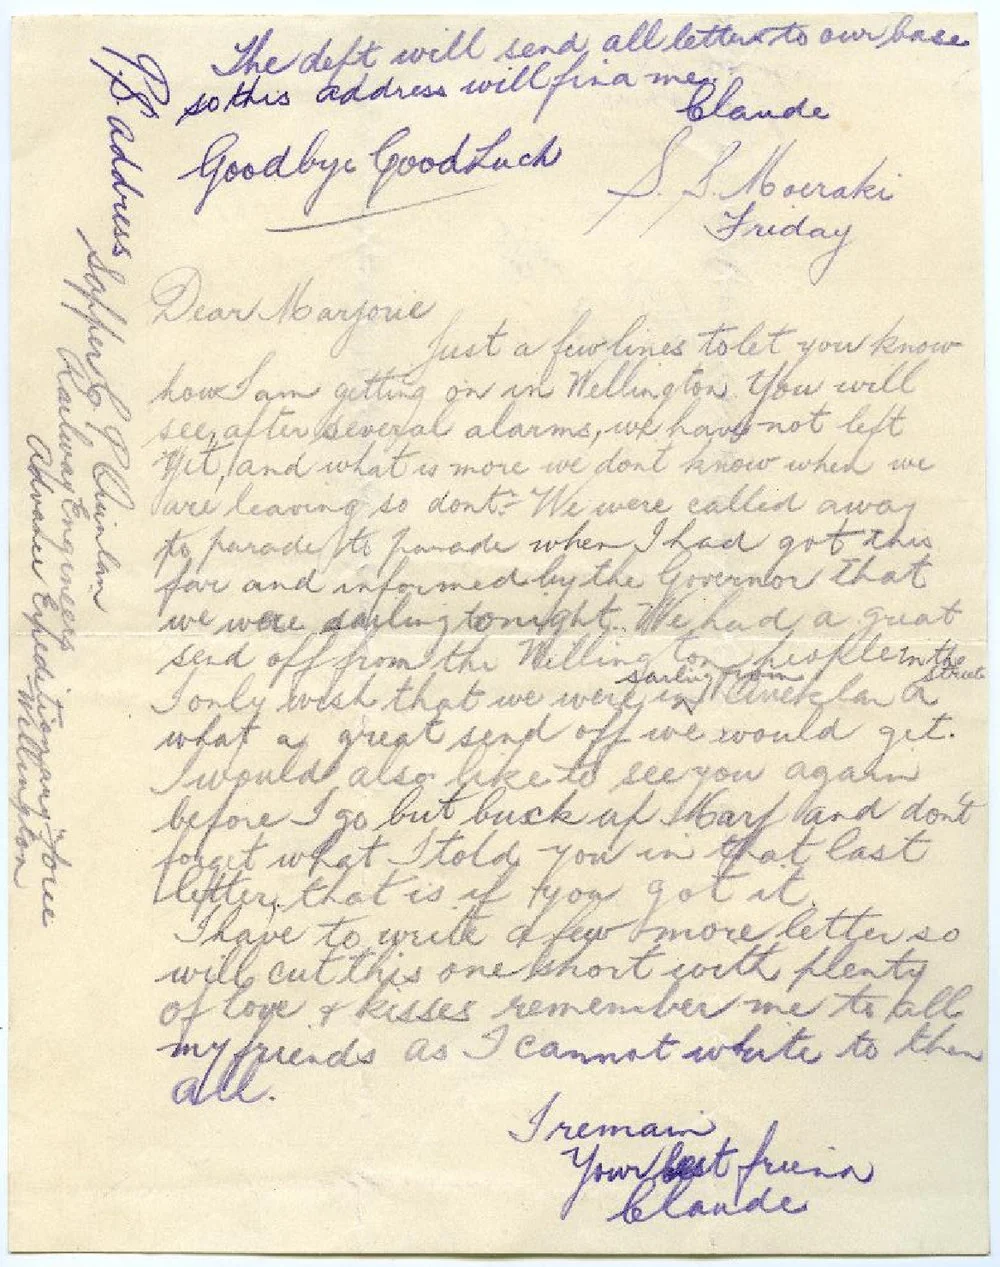 The dept will send all letters to our base
so this address will find me.
Claude
Goodbye Good Luck
S. S. Moeraki
Friday
Dear Marjorie
Just a few lines to let you know
how I am getting on in Wellington You will
see, after several alarms, we have not left
yet, and what is more we dont know when we
are leaving so dont:- We were called away
to parade to parade when I had got this
far and informed by the Governor that
we were sailing tonight. We had a great
send off from the Wellington people in the
streets
sailing from
I only wish that we were in Auckland
what a great send off we would get.
I would also like to see you again
before I go but buck up Marj and don't
forget what I told you in that last
letter, that is if you got it.
I have to write a few more letter so
will cut this one short with plenty
of love + kisses remember me to all
my friends as I cannot write to them
all.
I remain
Your best friend
Claude
P.S. address
Sapper C P Quinlan
Railway Engineers
Advance Expeditionary Force
Wellington